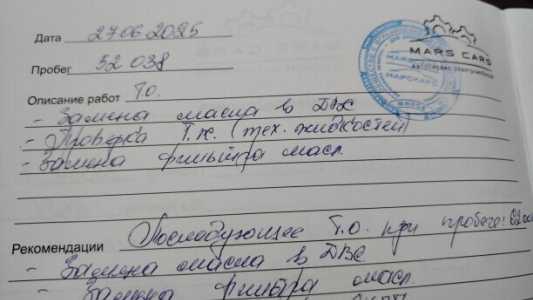 Дата 27.06.2025
MARS CARS
Пробег 52 038
Описание работ ТО.
- Замена масла в ДВС
- Проверка Т.Ж. (тех. жидкостей)
- Замена фильтра масл.
Рекомендации Последующее Т.О. при пробеге:
- Замена масла в ДВС
- Замена фильтра масл.